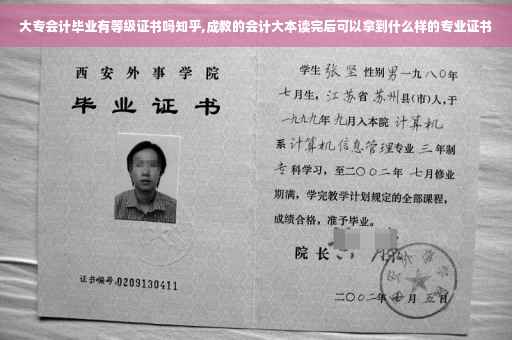 大专会计毕业有等级证书吗知乎,成教的会计大本读完后可以拿到什么样的专业证书
西安外事学院
毕业证书
证书编号:0209130411
学生 张坚 性别男 一九八〇年
七月生, 江苏省 苏州县(市)人,于
一九九九年 九月入本院 计算机
系 计算机信息管理专业 三 年制
专科学习, 至二〇〇二年 七月修业
期满, 学完教学计划规定的全部课程,
成绩合格, 准予毕业。
院长
二〇〇二年 月 五日